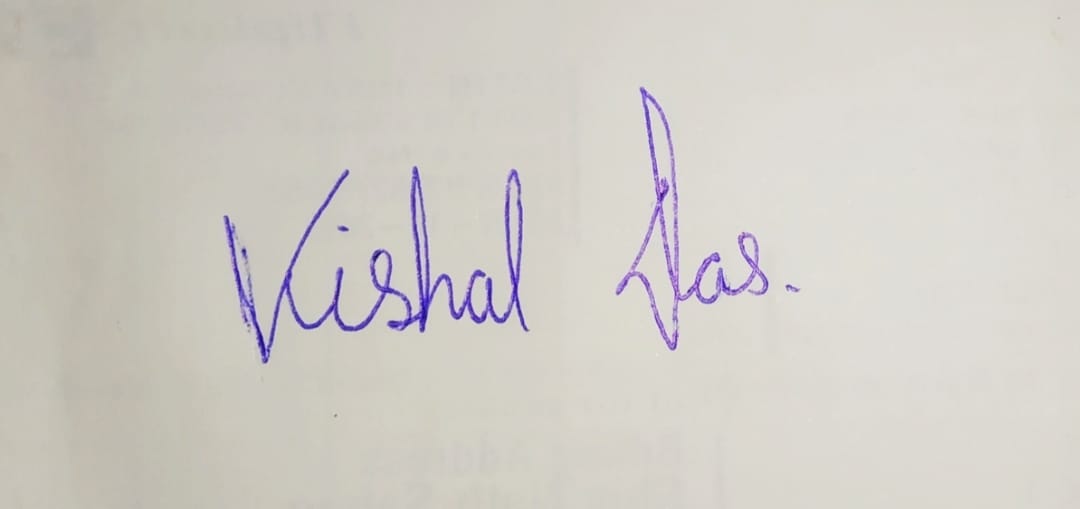 Vishal Das.